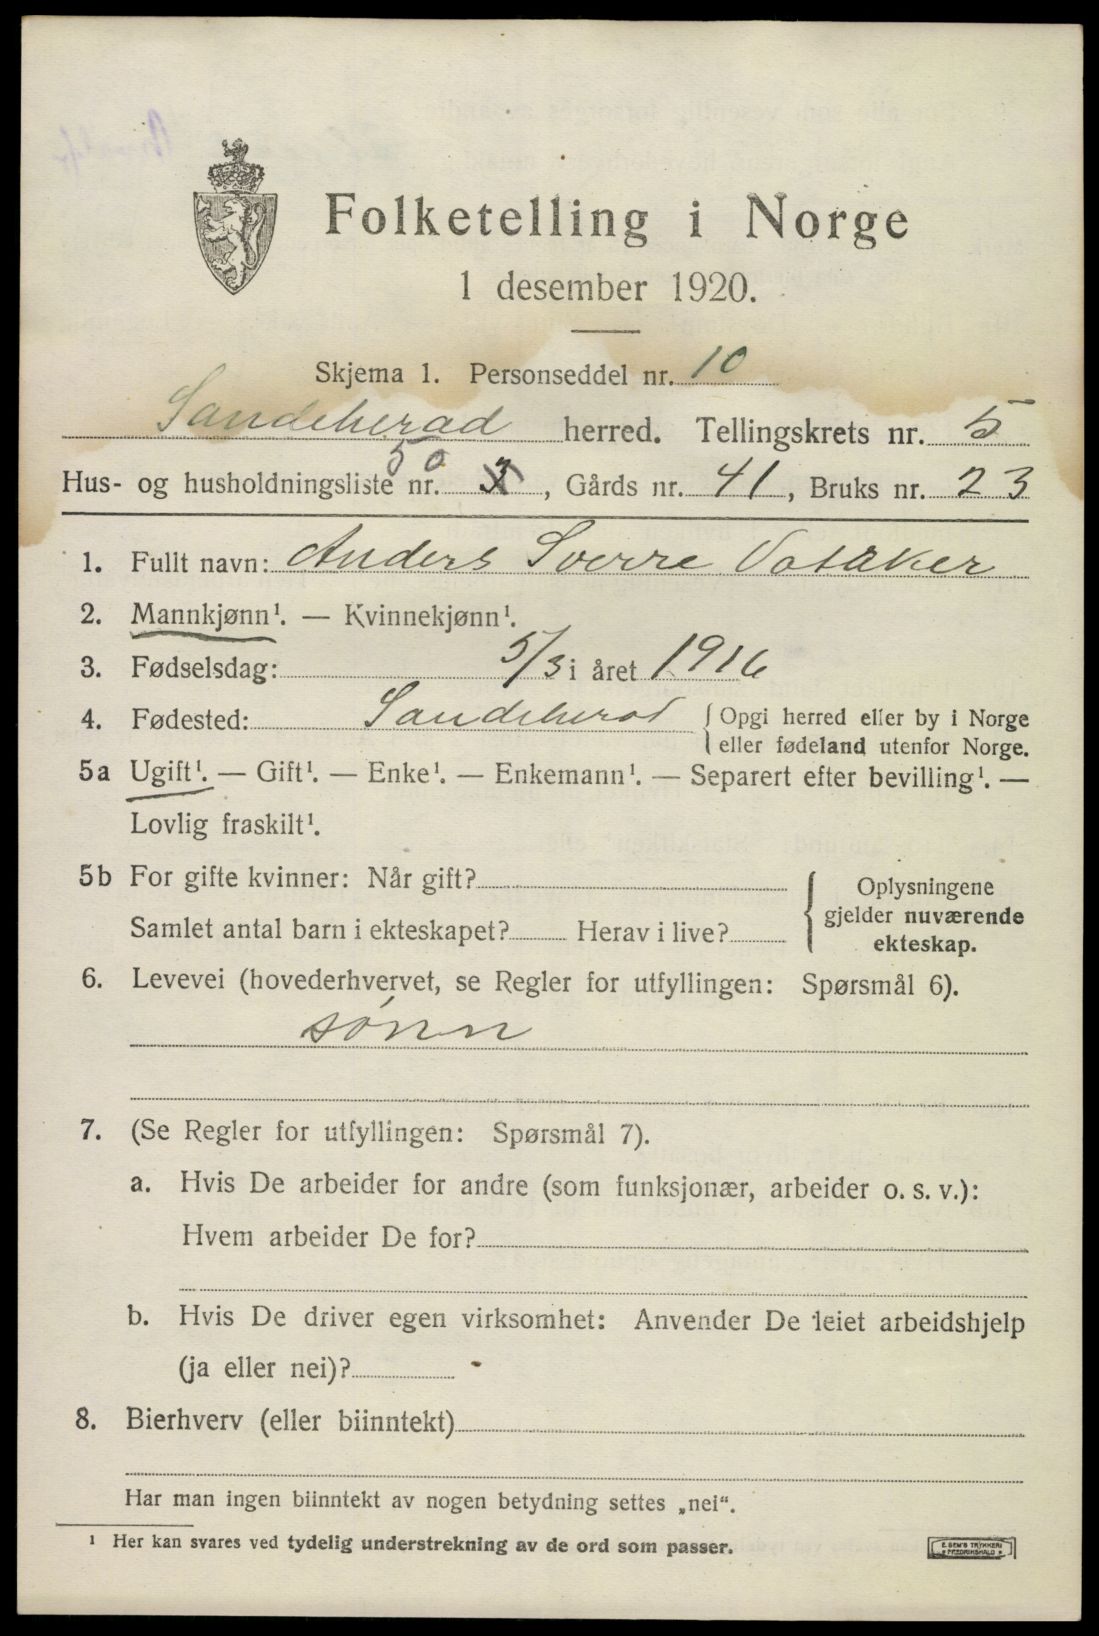 Folketelling i Norge
1 desember 1920.
Skjema 1. Personseddel nr. 10
Sandeherad herred. Tellingskrets nr. 5
50
Hus- og husholdningsliste nr. 3, Gårds nr. 41, Bruks nr. 23
1. Fullt navn: Anders Sverre Vataker
2. Mannkjønn¹. — Kvinnekjønn¹.
3. Fødselsdag: 5/3 i året 1916
4. Fødested: Sandeherad { Opgi herred eller by i Norge
eller fødeland utenfor Norge.
5a Ugift¹. — Gift¹. — Enke¹. — Enkemann¹. — Separert efter bevilling¹. —
Lovlig fraskilt¹.
5b For gifte kvinner: Når gift?
Samlet antal barn i ekteskapet? Herav i live?
Oplysningene
gjelder nuværende
ekteskap.
6. Levevei (hovederhvervet, se Regler for utfyllingen: Spørsmål 6).
sönn
7. (Se Regler for utfyllingen: Spørsmål 7).
a. Hvis De arbeider for andre (som funksjonær, arbeider o. s. v.):
Hvem arbeider De for?
b. Hvis De driver egen virksomhet: Anvender De leiet arbeidshjelp
(ja eller nei)?
8. Bierhverv (eller biinntekt)
Har man ingen biinntekt av nogen betydning settes „nei“.
¹ Her kan svares ved tydelig understrekning av de ord som passer.
E. SEM'S TRYKKERI
FREDRIKSHALD